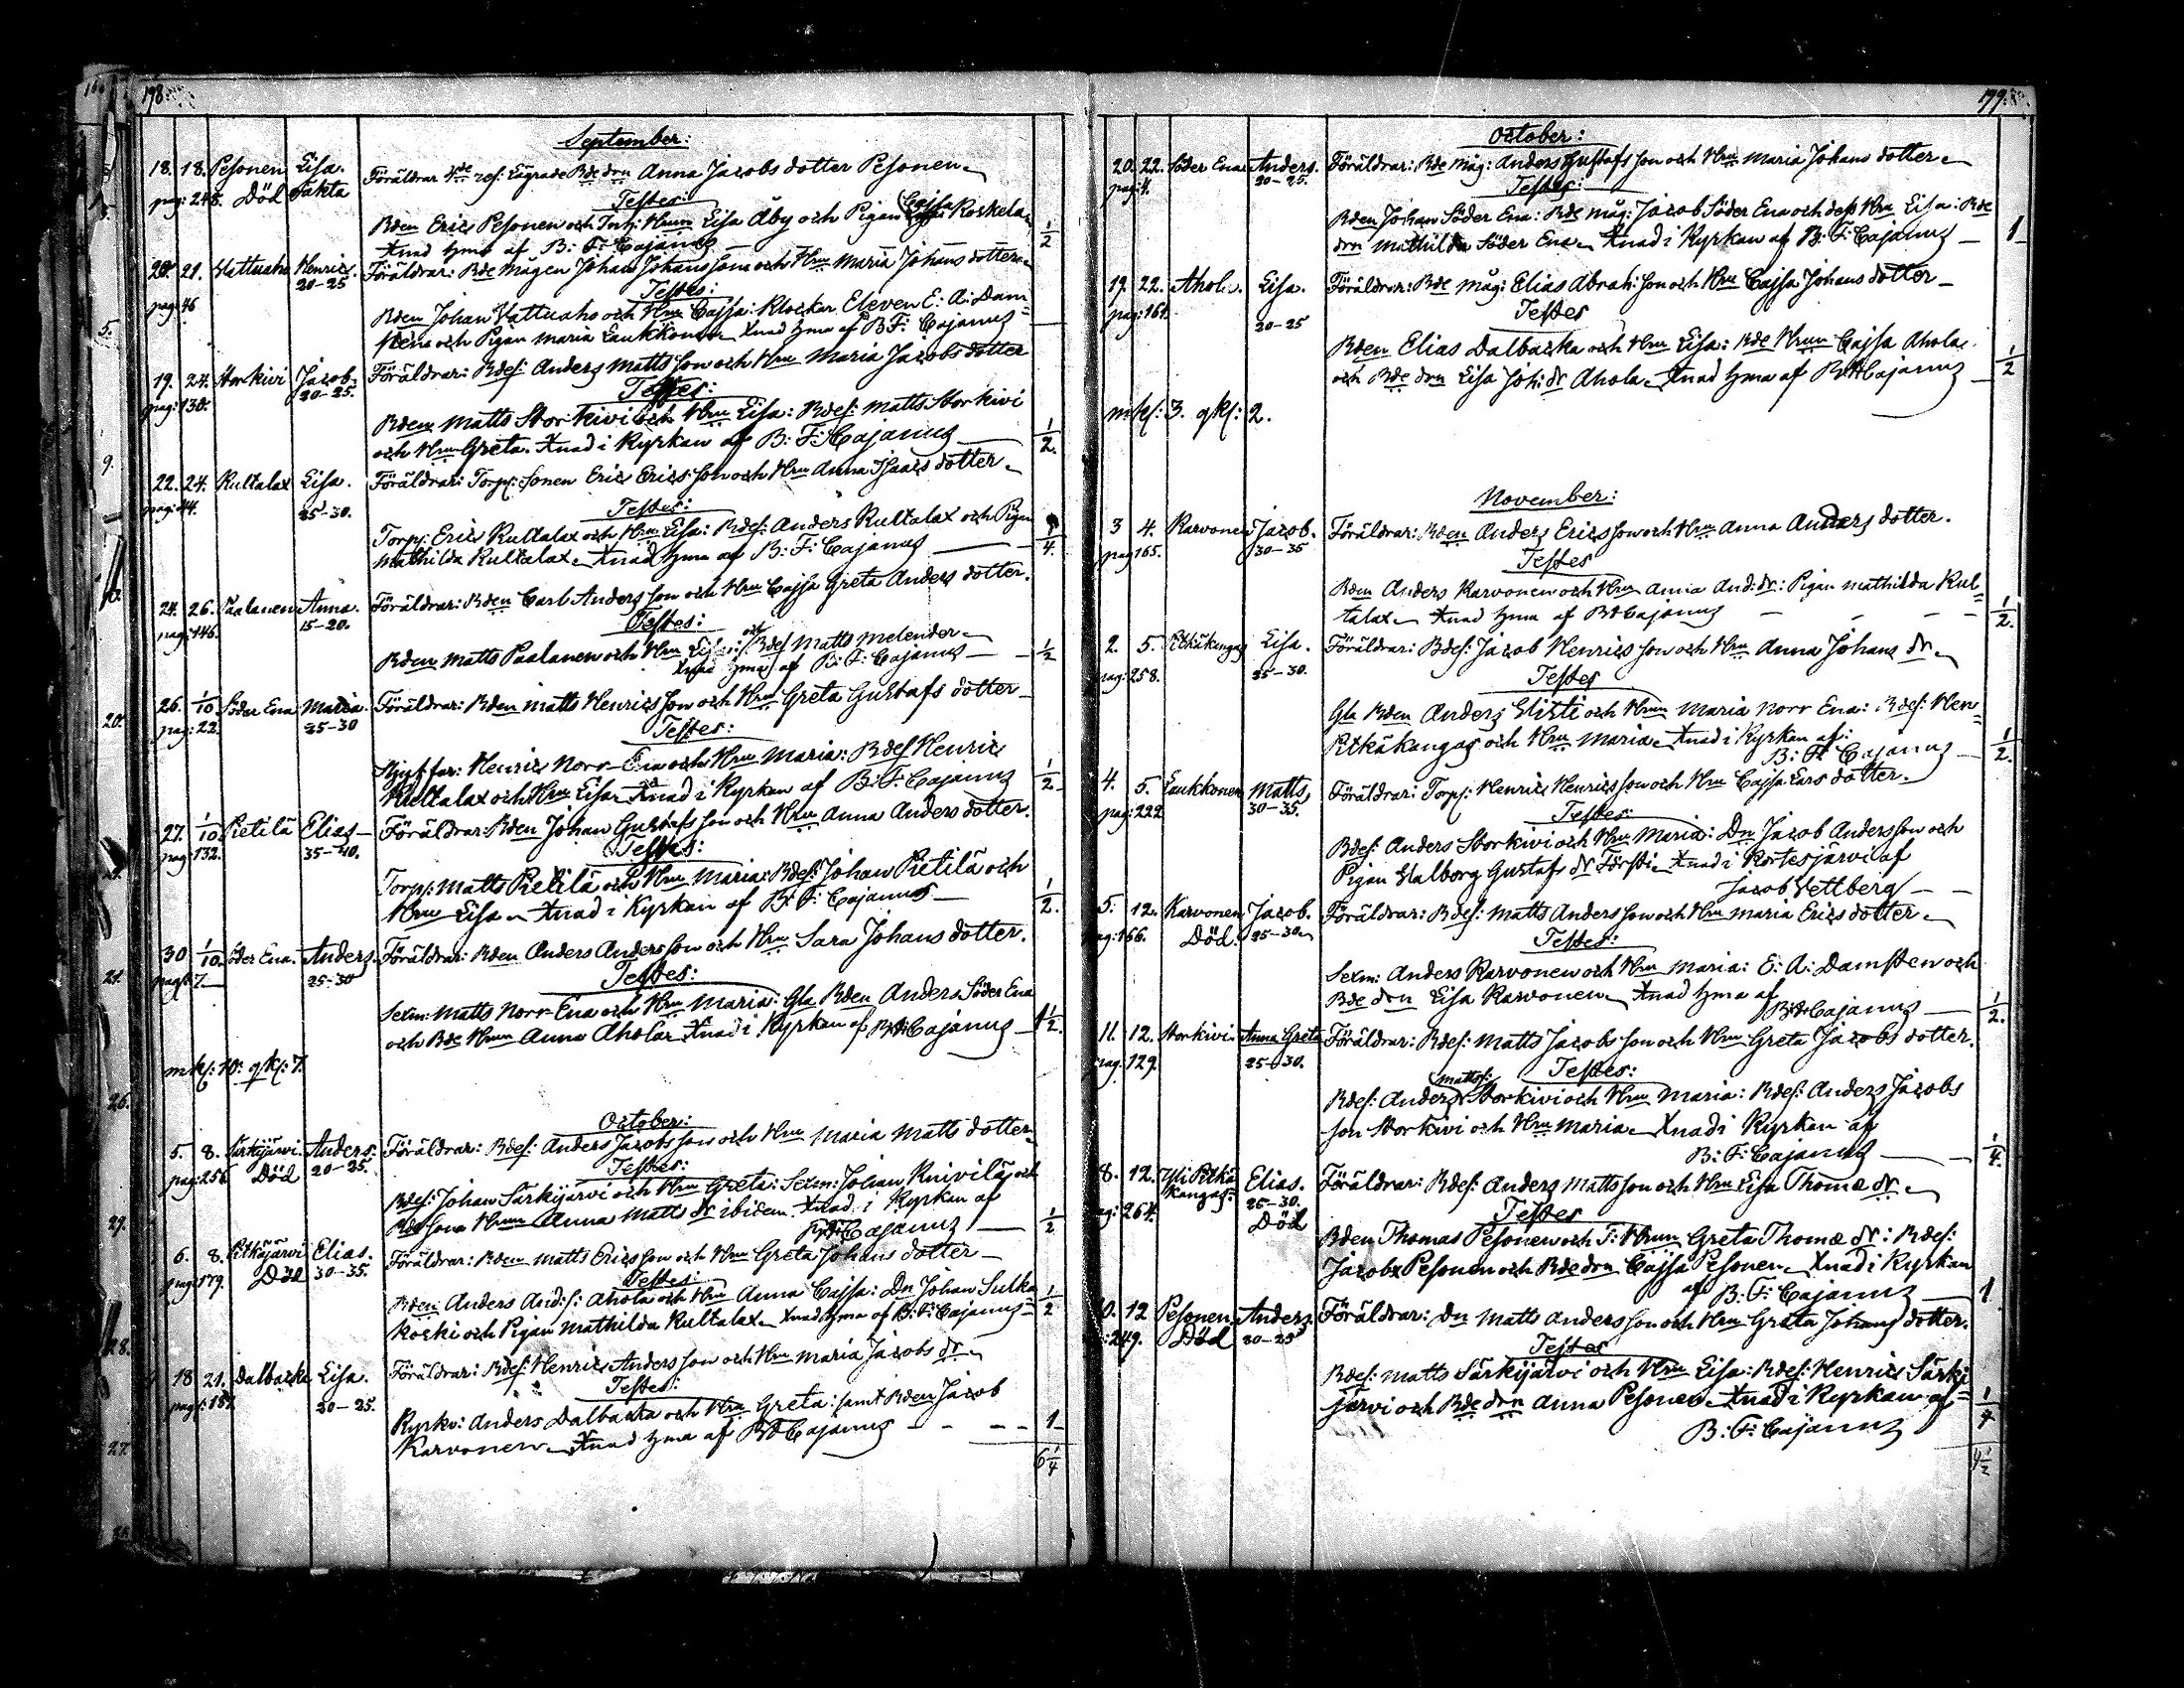 198.
September:
18. 18. Pesonen Lisa. Föräldrar Anna Jacobs dotter Pesonen
pag: 248. Död Testes:
Bden Eric Pesonen och Hrun Lisa Åby och Pigan Cajsa Koskela
Xnad hma af B: F: Cajanus 1/2
20. 21. Wattuaho Henric. Föräldrar: Bde Mågen Johan Johans son och Hru Maria Johans dotter
20-25 Testes:
pag: 46 Bden Johan Wattuaho och Hru Cajsa: Klockar Eleven E: A: Dam=
sten och Pigan Maria Laukkonen Xnad hma af B: F: Cajanus
19. 24. Storkivi Jacob. Föräldrar: Bdes: Anders Matts son och Hru Maria Jacobs dotter
pag: 130. 20-25. Testes:
Bden Matts Storkivi och Hru Lisa: Bdes: Matts Storkivi
och Hru Greta. Xnad i Kyrkan af B: F: Cajanus 1/2.
22. 24. Kultalax Lisa. Föräldrar: Torp: sonen Eric Erics son och Hru Anna Isaacs dotter
pag: 44. 25-30. Testes:
Torp: Eric Kultalax och Hru Lisa: Bdes: Anders Kultalax och Pigan
Mathilda Kultalax Xnad hma af B: F: Cajanus
24. 26. Paalanen Anna. Föräldrar: Bden Carl Anders son och Hru Cajsa Greta Anders dotter.
pag: 146. 15-20. Testes:
Bden Matts Paalanen och Hru Lisa: och Bdes Matts Melender
Xnad hma af B: F: Cajanus 1/2
26. 1/10 Söder Ena Maria. Föräldrar: Bden Matts Henrics son och Hru Greta Gustafs dotter
pag: 22. 25-30 Testes:
Henric Norr Ena och Hru Maria: Bdes Henric
Kultalax och Hru Lisa Xnad i Kyrkan af B: F: Cajanus 1/2
27. 1/10 Pietilä Elias Föräldrar: Bden Johan Gustafs son och Hru Anna Anders dotter.
pag: 132. 35-40. Testes:
Torp: Matts Pietilä och Hru Maria: Bdes: Johan Pietilä och
Hru Lisa Xnad i Kyrkan af B: F: Cajanus 1/2.
30 1/10. Söder Ena. Anders. Föräldrar: Bden Anders Anders son och Hru Sara Johans dotter.
pag: 7. 25-30 Testes:
Sexm: Matts Norr Ena och Hru Maria: Gla Bden Anders Söder Ena
och Bde Hrun Anna Ahola Xnad i Kyrkan af B: F: Cajanus 1/2.
mk: 10. qk: 7.
October:
5. 8. Särkijärvi. Anders. Föräldrar: Bdes: Anders Jacobs son och Hru Maria Matts dotter
pag: 256 Död 20-25. Testes:
Bdes: Johan Särkijärvi och Hru Greta: Sexm: Johan Knivilä och
Hrun Anna Matts dr ibidem Xnad i Kyrkan af
B: F: Cajanus 1/2
6. 8. Pitkäjärvi Elias. Föräldrar: Bden Matts Erics son och Hru Greta Johans dotter
pag: 179. Död 30-35. Testes:
Bden Anders And: s: Ahola och Hru Anna Cajsa: Dn Johan Sulka
koski och Pigan Mathilda Kultalax Xnad hma af B: F: Cajanus 1/2
18 21. Dalbacka Lisa. Föräldrar: Bdes: Henric Anders son och Hru Maria Jacobs dr
pag: 187. 20-25. Testes:
Kyrkv: Anders Dalbacka och Hru Greta: samt Bden Jacob
Karvonen Xnad hma af B: F: Cajanus 1
6 1/4
199.
October:
20. 22. Söder Ena Anders. Föräldrar: Bde Måg: Anders Gustafs son och Hru Maria Johans dotter
pag: 4. 20-25. Testes:
Bden Johan Söder Ena: Bde måg: Jacob Söder Ena och dess Hru Lisa: Bde
drn Mathilda Söder Ena Xnad i Kyrkan af B: F: Cajanus 1
19. 22. Ahola. Lisa. Föräldrar: Bde Måg: Elias Abrah: son och Hru Cajsa Johans dotter
pag: 161. 20-25 Testes
Bden Elias Dalbacka och Hru Lisa: Bde Hrun Cajsa Ahola
och Bde drn Lisa Joh: dr Ahola Xnad hma af B: F: Cajanus 1/2
mk: 3. qk: 2.
November:
3 4. Karvonen Jacob. Föräldrar: Bden Anders Erics son och Hru Anna Anders dotter.
pag 165. 30-35 Testes
Bden Anders Karvonen och Hru Anna And: dr: Pigan Mathilda Kul=
talax Xnad hma af B: F: Cajanus 1/2.
2. 5. Pitkäkangas Lisa. Föräldrar: Bdes: Jacob Henrics son och Hru Anna Johans dr
pag: 258. 25-30. Testes
Gla Bden Anders Slisti och Hrun Maria Norr Ena: Bdes: Hen=
Pitkäkangas och Hru Maria Xnad i Kyrkan af:
B: F: Cajanus 1/2.
4. 5. Laukkonen Matts, Föräldrar: Torp: Henric Henrics son och Hru Cajsa Lars dotter.
pag: 222 30-35. Testes:
Bdes: Anders Storkivi och Hru Maria: Dn Jacob Anders son och
Pigan Walborg Gustafs dr Försti Xnad i Kortesjärvi af
Jacob Wettberg
5. 12. Karvonen Jacob. Föräldrar: Bdes: Matts Anders son och Hru Maria Erics dotter
pag: 166. Död. 25-30 Testes:
Sexm: Anders Karvonen och Hru Maria: E: A: Damsten och
Bde drn Lisa Karvonen Xnad hma af
B: F: Cajanus 1/2.
11. 12. Storkivi Anna Greta Föräldrar: Bdes: Matts Jacobs son och Hru Greta Jacobs dotter.
pag: 129. 25-30. Testes:
Bdes: Anders Mattss: Storkivi och Hru Maria: Bdes: Anders Jacobs
son Storkivi och Hru Maria Xnad i Kyrkan af
B: F: Cajanus 1/4.
8. 12. Yli Pitkä Elias. Föräldrar: Bdes: Anders Matts son och Hru Lisa Thomæ dr
kangas 25-30.
264. Död Testes
Bden Thomas Pesonen och F: Hrun Greta Thomæ dr: Bdes:
Jacob Pesonen och Bde drn Cajsa Pesonen Xnad i Kyrkan
af B: F: Cajanus 1
10. 12 Pesonen Anders Föräldrar: Dn Matts Anders son och Hru Greta Johans dotter.
249. Död 20-25 Testes
Bdes: Matts Särkijärvi och Hru Lisa: Bdes: Henric Särki
järvi och Bde drn Anna Pesonen Xnad i Kyrkan af
B: F: Cajanus 1/4
4 1/2